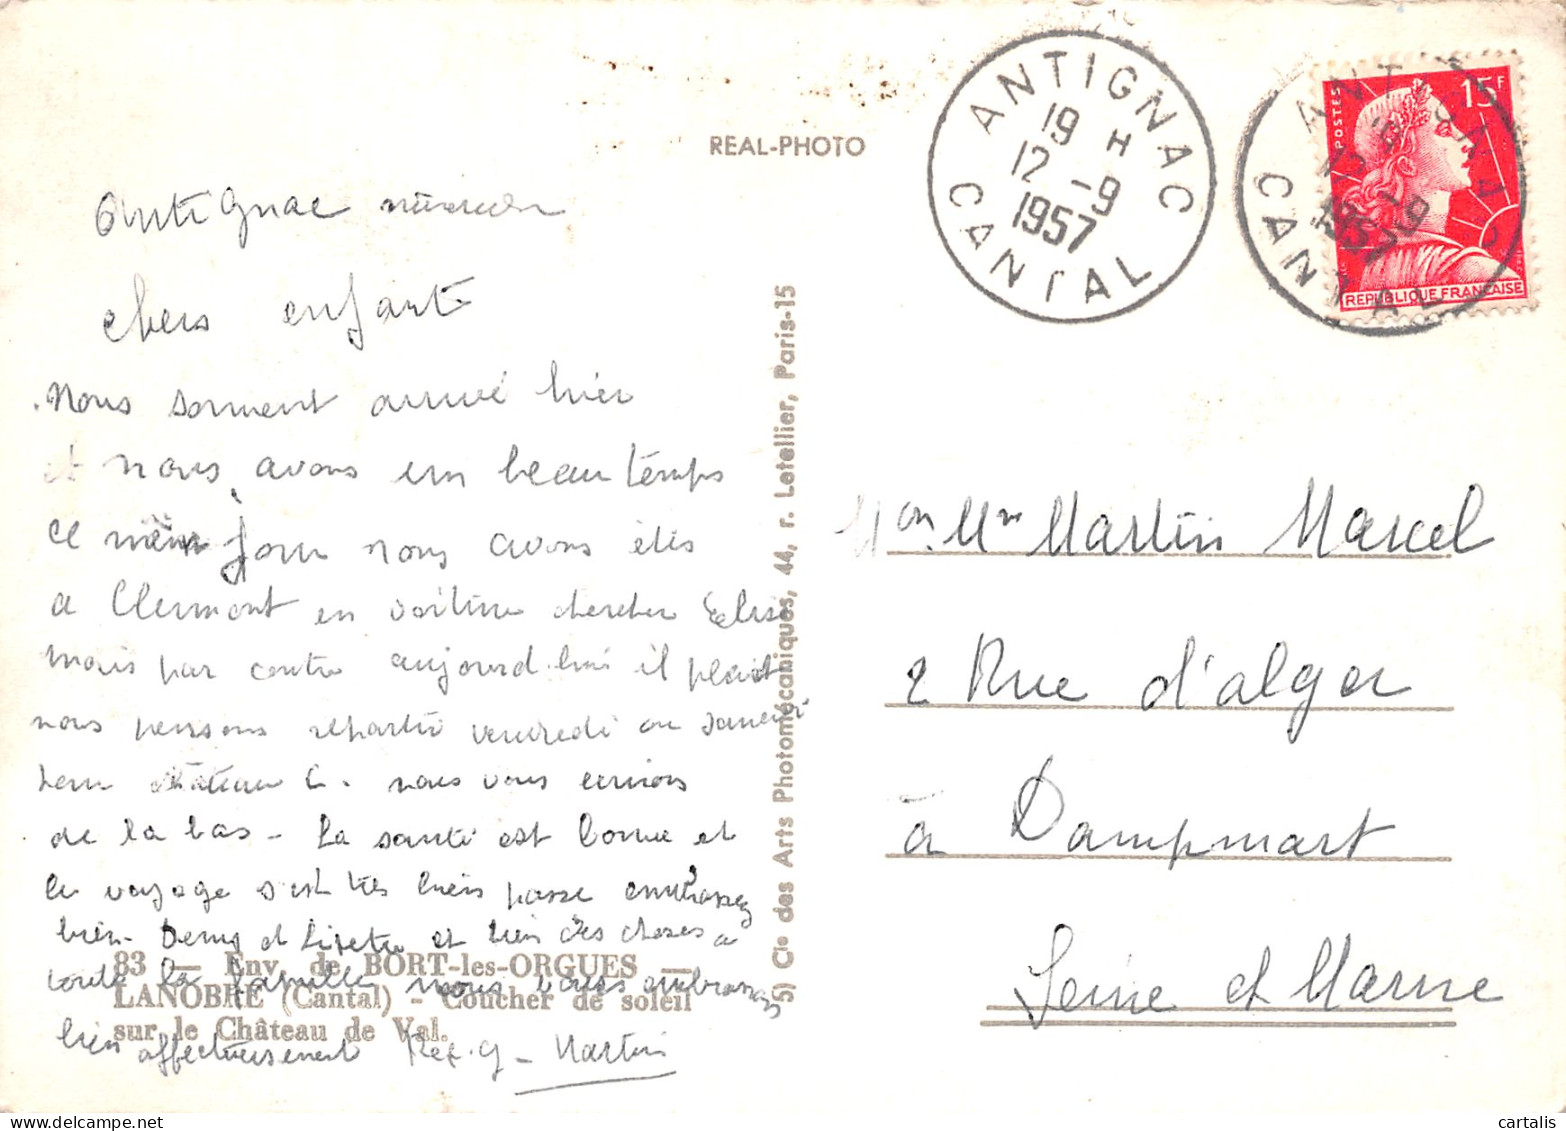 REAL-PHOTO
ANTIGNAC
19 H
12 - 9
1957
CANTAL
ANTIGNAC
12 - 9
1957
CANTAL
POSTES
15F
REPUBLIQUE FRANÇAISE
Antignac
chers enfants
Nous somment arrivé hier
et nous avons un beau temps
ce même jour nous avons étés
a Clermont en voiture chercher Elise
mais par contre aujourd'hui il pleut
nous pensons repartir vendredi ou samedi
nous vous ecrirons
de la bas - La santé est bonne et
le voyage s'est très bien passe embrassez
bien Deny et Lisette et bien des choses a
toute la famille nous vous embrassons
bien affectueusement G - Martin
83 — Env. de BORT-les-ORGUES —
LANOBRE (Cantal) - Coucher de soleil
sur le Château de Val.
5) Cie des Arts Photomécaniques, 44, r. Letellier, Paris-15
Martin Marcel
2 Rue d'alger
à Dampmart
Seine et Marne
cartalis